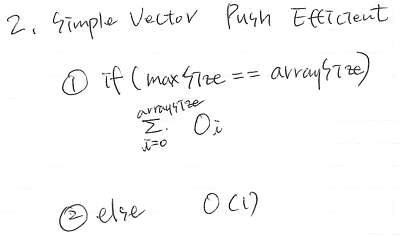 2. Simple Vector Push Efficient
① if (maxSize == arraySize)
arraySize
∑ Oi
i=0
② else O(1)